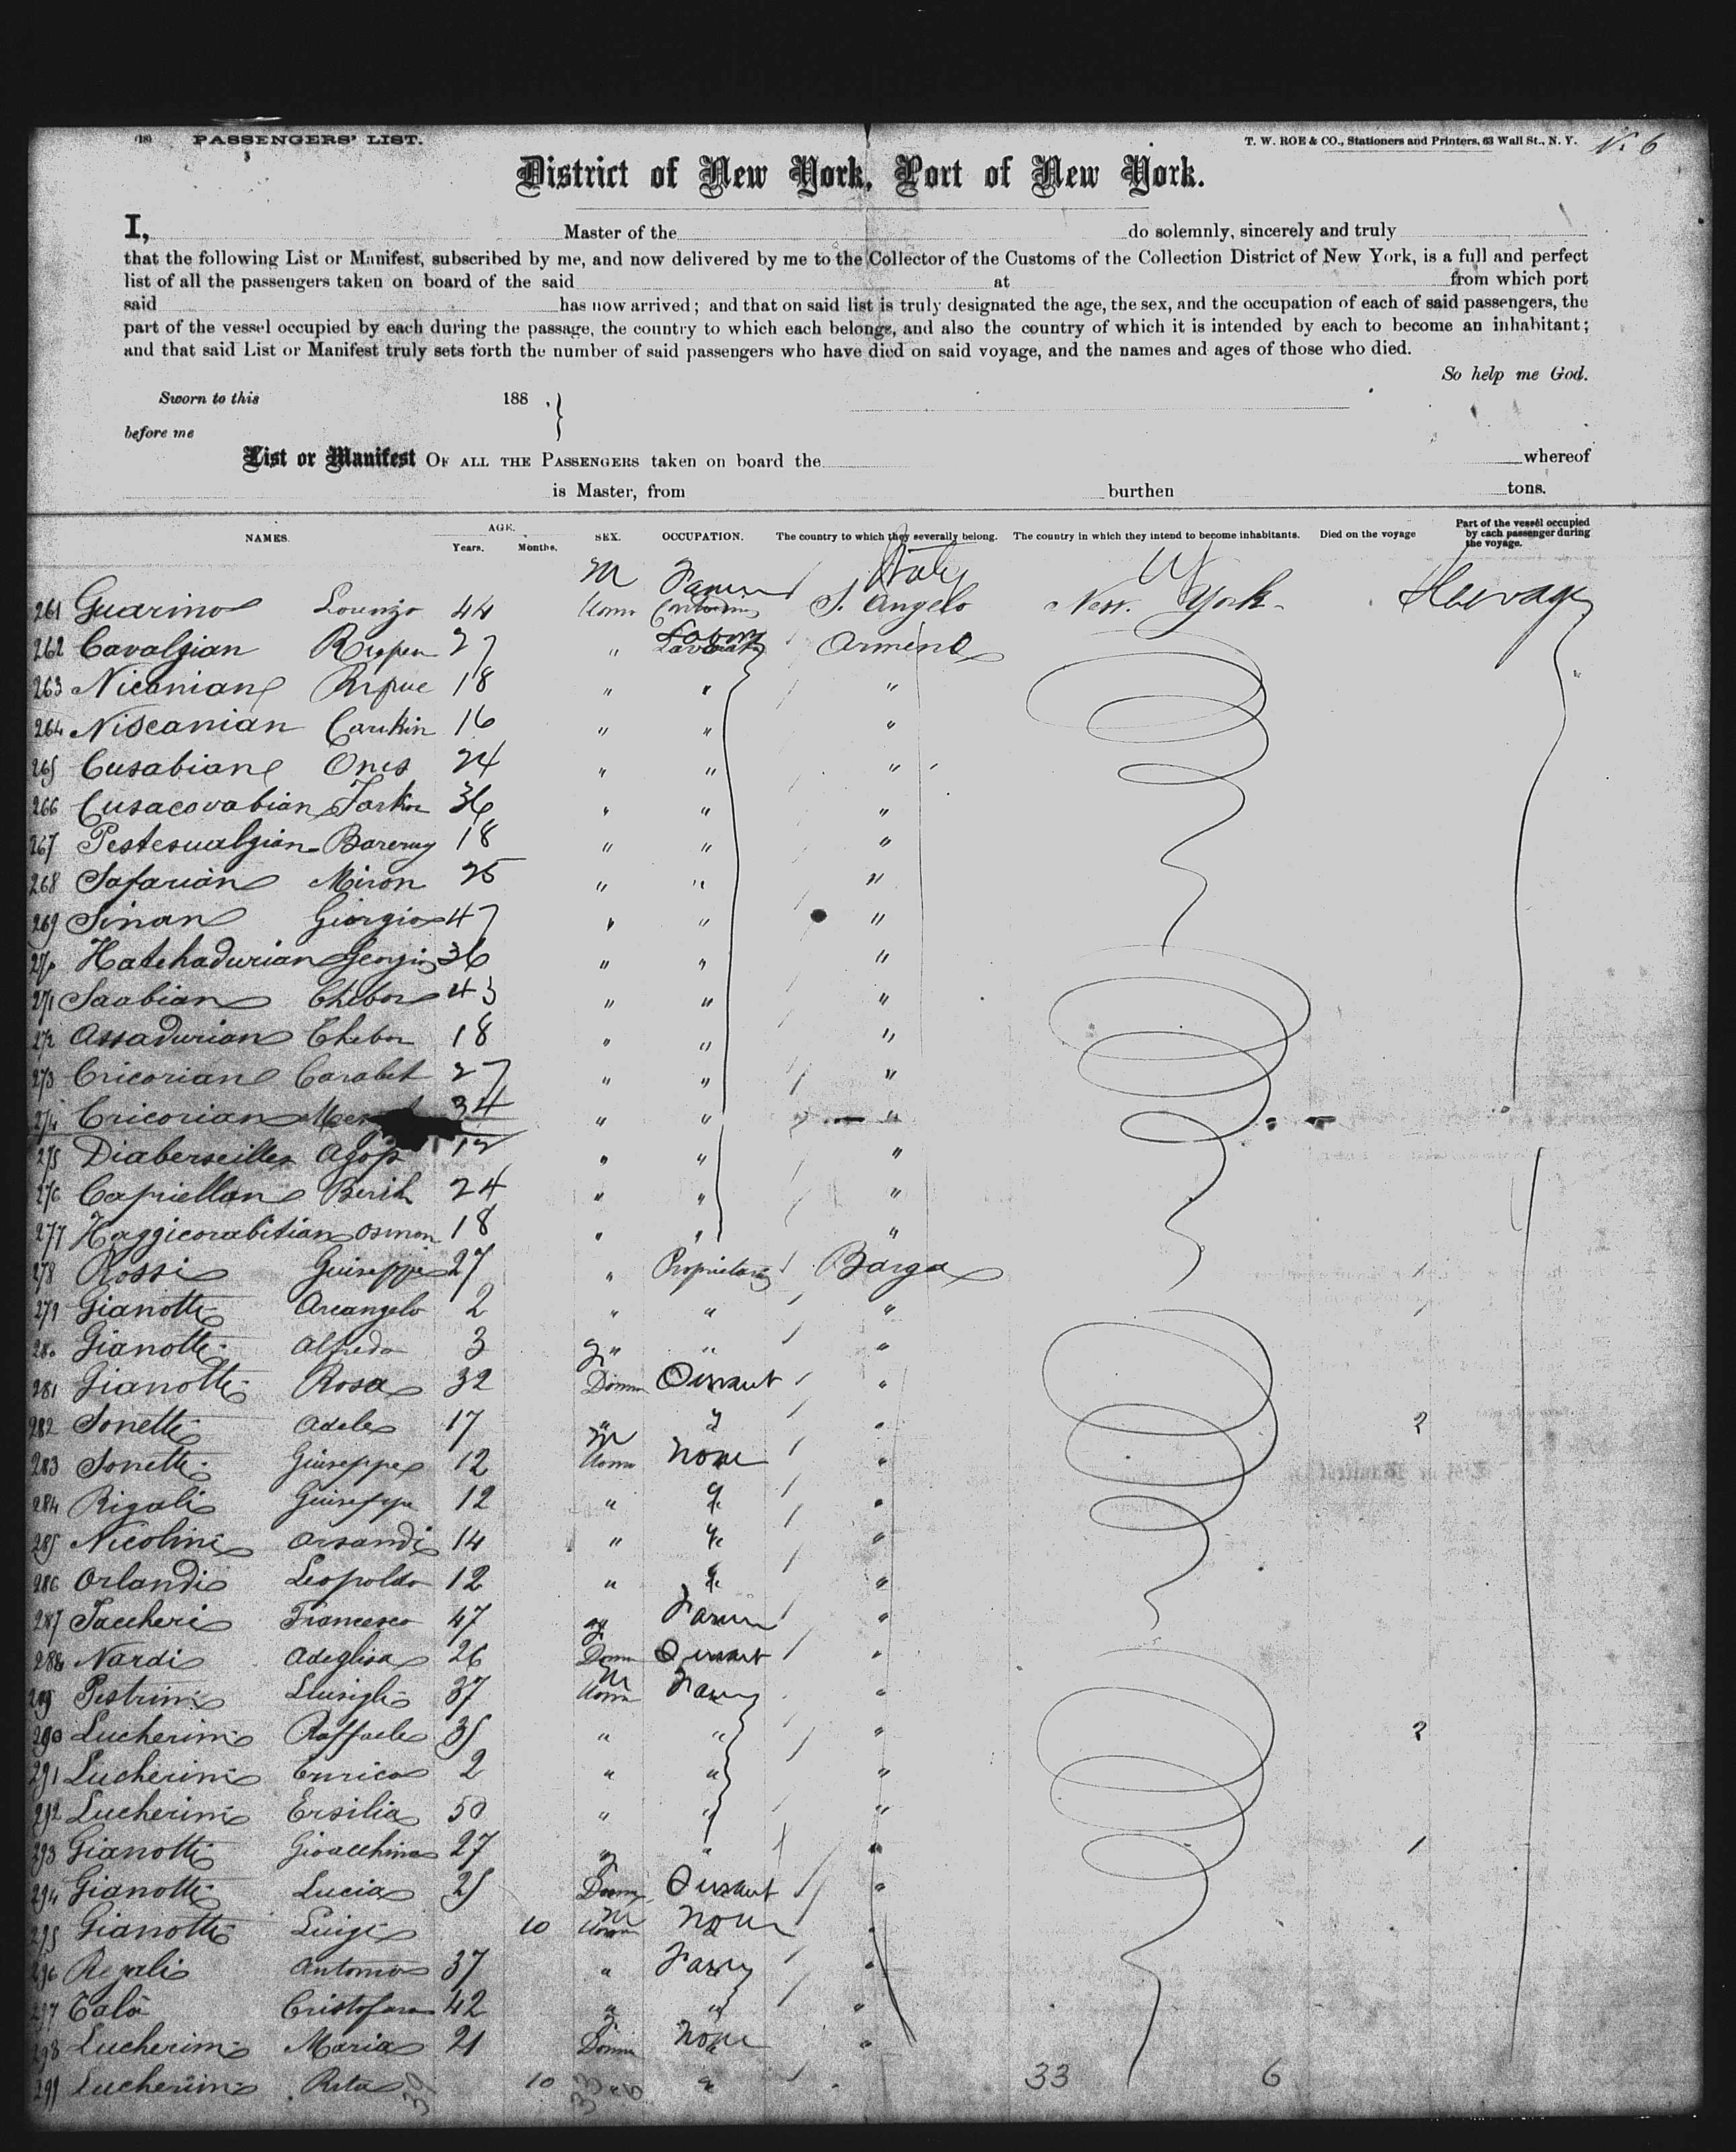 (18) PASSENGERS' LIST.
T. W. ROE & CO., Stationers and Printers, 63 Wall St., N. Y. N. 6
District of New York, Port of New York.
I, Master of the do solemnly, sincerely and truly
that the following List or Manifest, subscribed by me, and now delivered by me to the Collector of the Customs of the Collection District of New York, is a full and perfect
list of all the passengers taken on board of the said at from which port
said has now arrived; and that on said list is truly designated the age, the sex, and the occupation of each of said passengers, the
part of the vessel occupied by each during the passage, the country to which each belongs, and also the country of which it is intended by each to become an inhabitant;
and that said List or Manifest truly sets forth the number of said passengers who have died on said voyage, and the names and ages of those who died.
So help me God.
Sworn to this 188 .
before me
List or Manifest OF ALL THE PASSENGERS taken on board the whereof
is Master, from burthen tons.
NAMES. AGE. Years. Months. SEX. OCCUPATION. The country to which they severally belong. The country in which they intend to become inhabitants. Died on the voyage Part of the vessel occupied by each passenger during the voyage.
M Farmer Italy
261 Guarino Lorenzo 44 Uomo S. Angelo New York
262 Cavalgian Rupen 27 " Labor Armena
263 Nicanian 18 " " "
264 Niscanian Carikin 16 " " "
265 Cusabian Ones 24 " " "
266 Cusacovabian 36 " " "
267 18 " " "
268 Safarian Miron 25 " " "
269 Sinan Giorgio 47 " " "
270 Hatchadurian Georgio 36 " " "
271 Saabian Chebor 43 " " "
272 Assadurian Chebor 18 " " "
273 Cricorian Carabet 27 " " "
274 Cricorian 34 " " "
275 Agop 12 " " "
276 Capriellan 24 " " "
277 Haggicorabitian Osmon 18 " " "
278 Rossi Giuseppe 27 " Proprietario Barga
279 Gianotti Arcangelo 2 " " "
280 Gianotti Alfredo 3 " " "
281 Gianotti Rosa 32 Donna "
282 Sonetti Adele 17 " " 2
M
283 Sonetti Giuseppe 12 Uomo None "
284 Rigali Giuseppe 12 " "
285 Nicolini 14 " "
286 Orlandi Leopoldo 12 " "
287 Saccheri Francesco 47 " Farm "
288 Nardi Adeglisa 26 Donna "
M
289 Pestrini Luigi 37 Uomo Farm "
290 Lucherini Raffaele 35 " " " 2
291 Lucherini Enrico 2 " " "
292 Lucherini Ersilia 50 " " "
293 Gianotti Gioacchino 27 " " " 1
294 Gianotti Lucia 25 Donna "
M
295 Gianotti Luigi 10 Uomo None "
296 Regali Antonio 37 " Farm "
297 Talà Cristofaro 42 " " "
298 Lucherini Maria 21 Donna None "
299 Lucherini Rita 10 " " 33 6